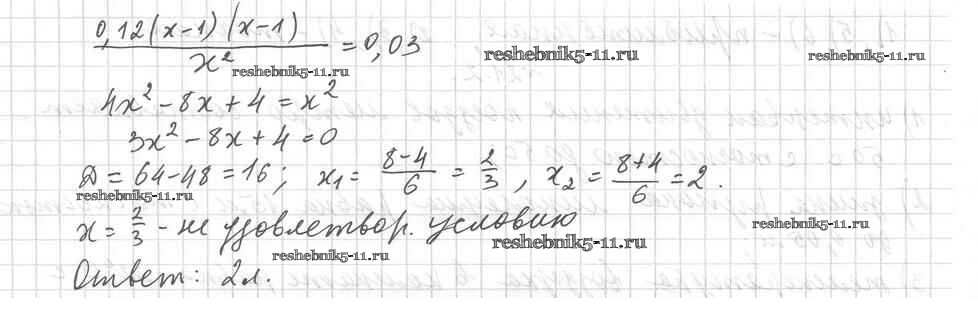 0,12(x-1)(x-1)/x² = 0,03
reshebnik5-11.ru reshebnik5-11.ru reshebnik5-11.ru
4x² - 8x + 4 = x²
3x² - 8x + 4 = 0
Д = 64-48 = 16; x₁ = (8-4)/6 = 2/3, x₂ = (8+4)/6 = 2.
reshebnik5-11.ru
x = 2/3 - не удовлетвор. условию
reshebnik5-11.ru reshebnik5-11.ru
Ответ: 2л.
reshebnik5-11.ru